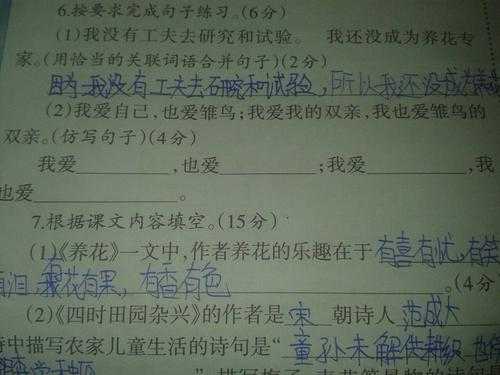 6.按要求完成句子练习。(6分)
(1)我没有工夫去研究和试验。 我还没成为养花专
家。(用恰当的关联词语合并句子)(2分)
因为我没有工夫去研究和试验,所以我还没成为养
(2)我爱自己,也爱雏鸟;我爱我的双亲,我也爱雏鸟的
双亲。(仿写句子)(4分)
我爱________,也爱________;我爱________,我
也爱________________。
7.根据课文内容填空。(15分)
(1)《养花》一文中,作者养花的乐趣在于 有喜有忧,有笑
有泪,花有果,有香有色________________。(4分
(2)《四时田园杂兴》的作者是 宋 朝诗人 范成大
中描写农家儿童生活的诗句是“ 童孙未解供耕织